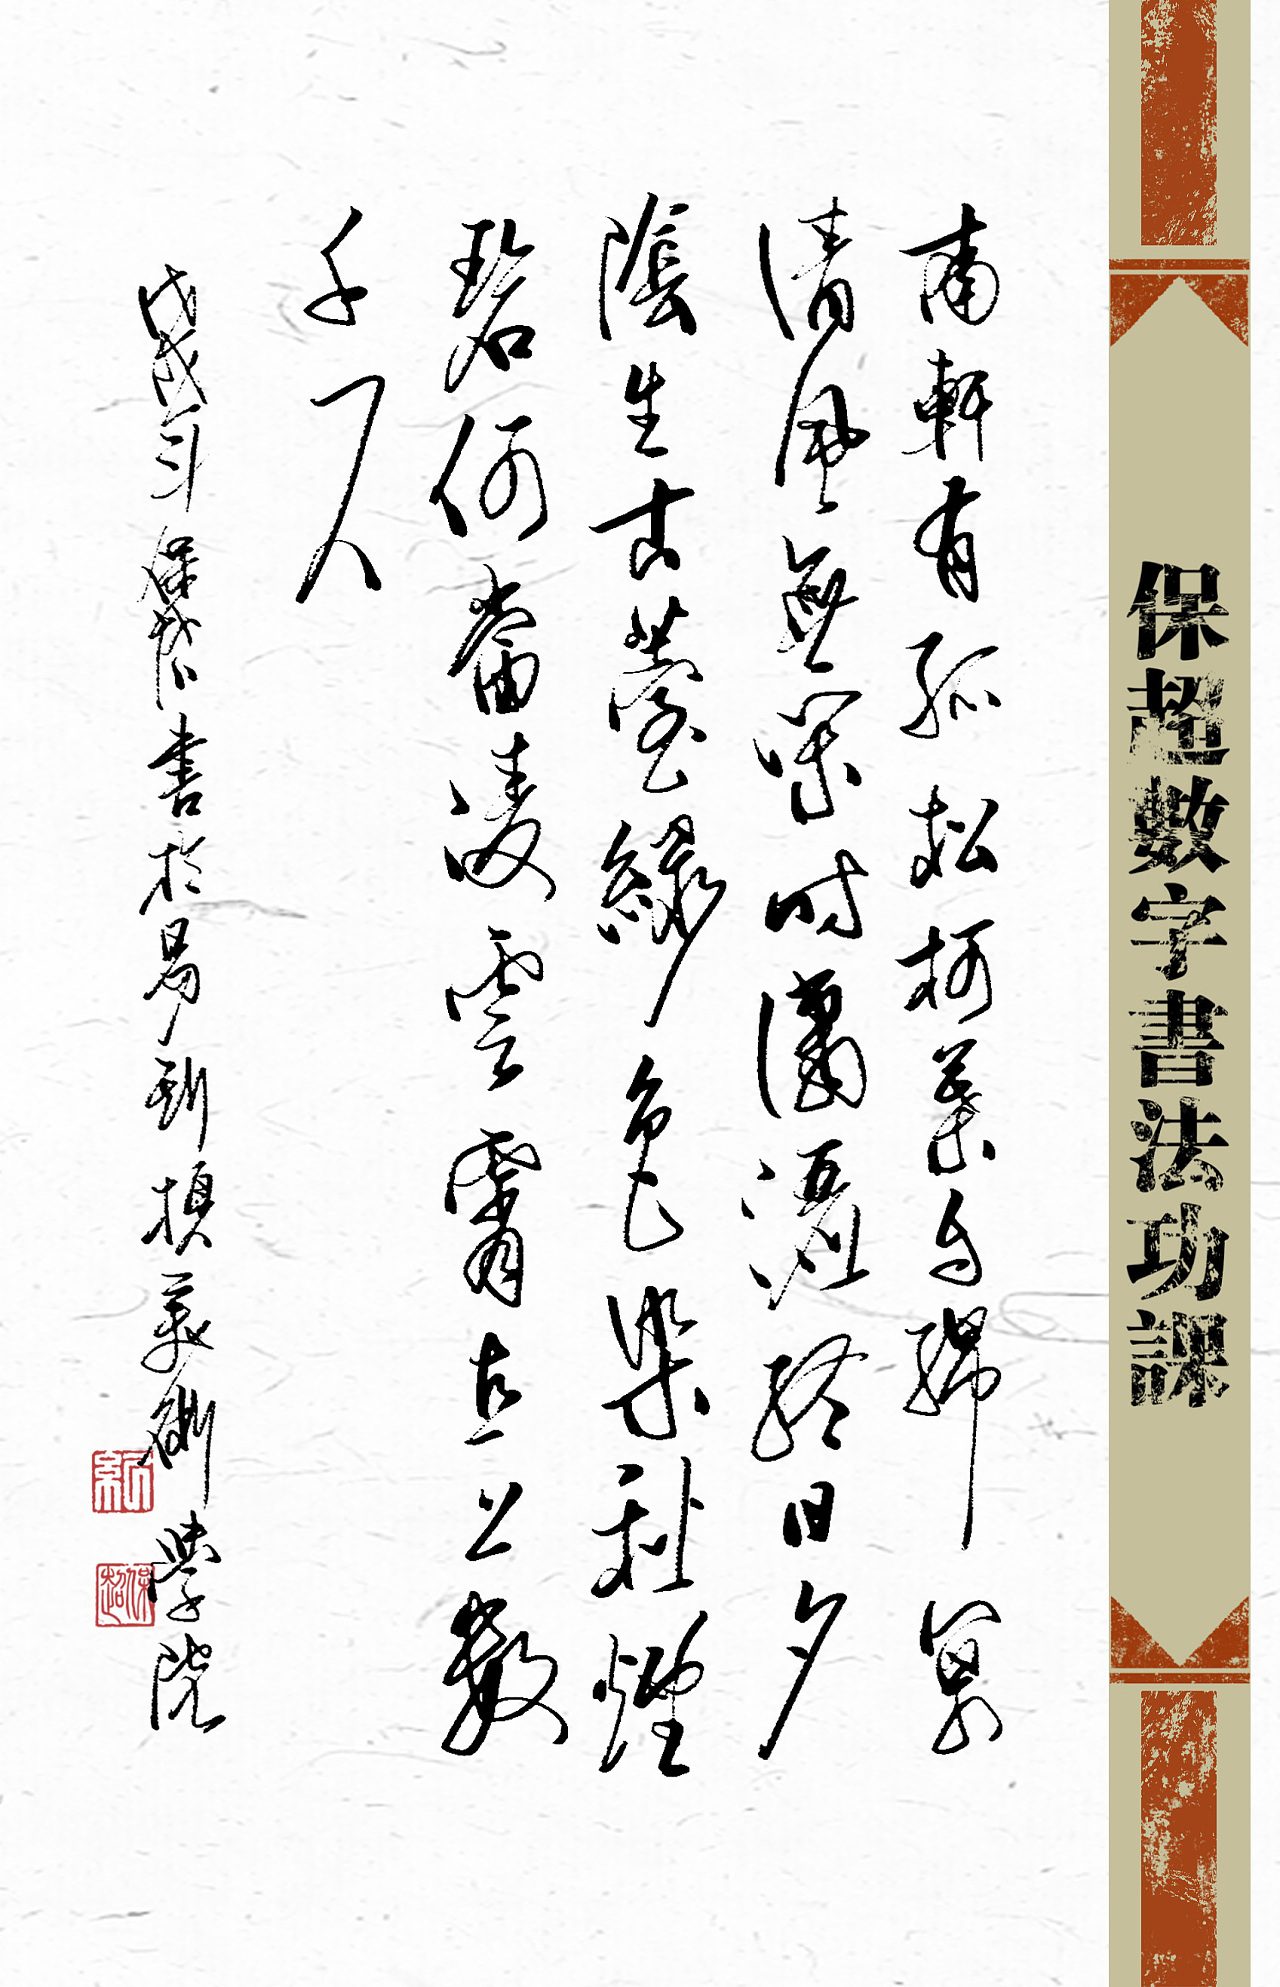 保超數字書法功課
南軒有孤松柯葉自綿冪
清風無閑時瀟灑終日夕
陰生古苔綠色染秋煙
碧何當凌雲霄直上數
千尺
戊戌年保超書於易到美術學院
保超